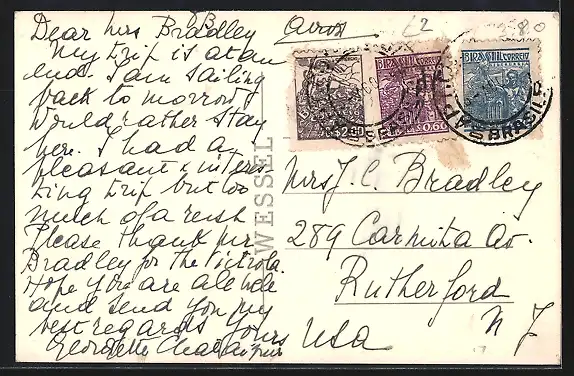 Dear Mrs Bradley
My trip is at an
end. I am sailing
back to morrow I
would rather stay
here. I had a
pleasant & interes
ting trip but too
much of a rush
Please thank Mr
Bradley for the Victrola.
Hope you are all well
and send you my
best regards Yours
Georgette
Avion
62
80
BRASIL CORREIO
Cr$2.00
BRASIL CORREIO
0.60
BRASIL CORREIO
BRASIL
WESSEL
Mrs J. C. Bradley
289 Carmita Av.
Rutherford
N J
USA